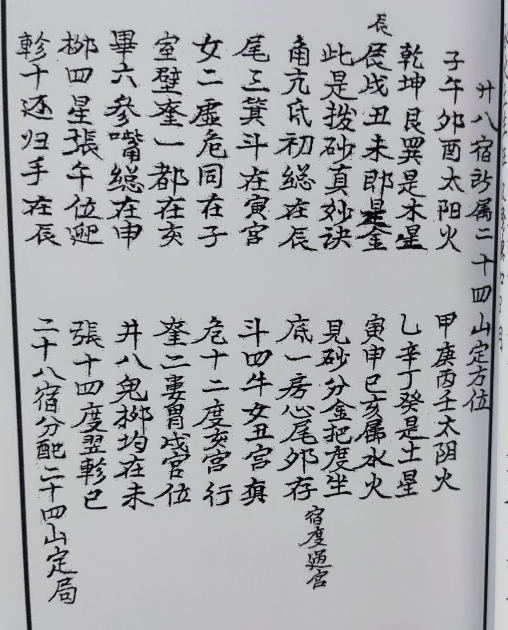 廿八宿所属二十四山定方位
子午卯酉太阳火
甲庚丙壬太阴火
乾坤艮巽是木星
乙辛丁癸是土星
辰
辰戌丑未即是金
寅申巳亥属水火
此是拨砂真妙诀
見砂分金把度坐
角亢氐初總在辰
底一房心尾卯存
宿度過宮
尾三箕斗在寅宮
斗四牛女丑宮旗
女二虚危同在子
危十二度亥宮行
室壁奎一都在亥
奎二婁胃戌宮位
畢六參嘴總在申
井八鬼柳均在未
柳四星張午位迎
張十四度翌軫巳
軫十还归手在辰
二十八宿分配二十四山定局